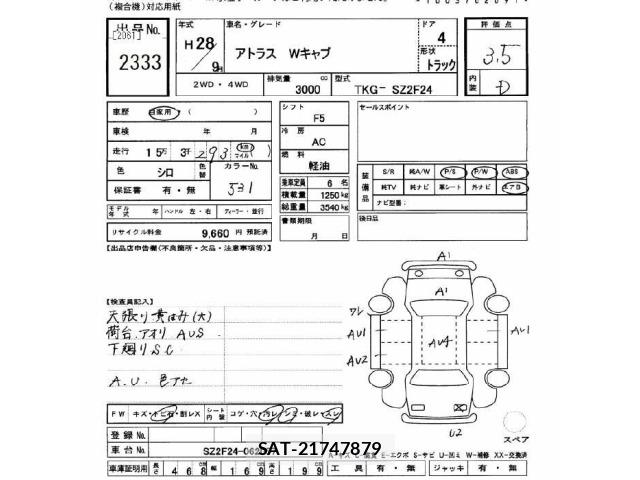 (複合機)対応用紙
出品No.
[2081]
2333
年式
H28/9H
車名・グレード
アトラス Wキャブ
ドア
4
形状
トラック
評価点
3.5
内装
D
2WD・4WD
排気量
3000 cc
型式
TKG- SZ2F24
車歴 自家用・( )
車検 年 月
走行 15万 3千 293 km マイル ( )
色 シロ
色替
カラーNo.
531
保証書 有・無
モデル年式 年 ハンドル 左・右 ディーラー・並行
リサイクル料金 9,660 円 預託済
シフト
F5
冷房
AC
燃料
軽油
乗車定員 6 名
積載量 1250kg
総重量 3540kg
書類期限
月 日
セールスポイント
装備品
S/R 純A/W P/S P/W ABS
純TV 純ナビ 革シート 外ナビ エアB
ナビ型番:
後日品
【出品店申告欄(不良箇所・欠品・注意事項等)】
【検査員記入】
天張り黄ばみ(大)
荷台.アオリ AUS
下廻りSC
A.U. 色アセ
A1
A1
ワレ
AU1
AU2
AU4
AU1
U2
スペア
FW キズ・トビ石・割レX シート内装 コゲ・穴・汚レ・シミ・破レ・スレ
登録No.
車台No. SZ2F24-062
SAT-21747879
車庫証明用 長さ 468 幅 169 高さ 199 工具 有・無 ジャッキ 有・無